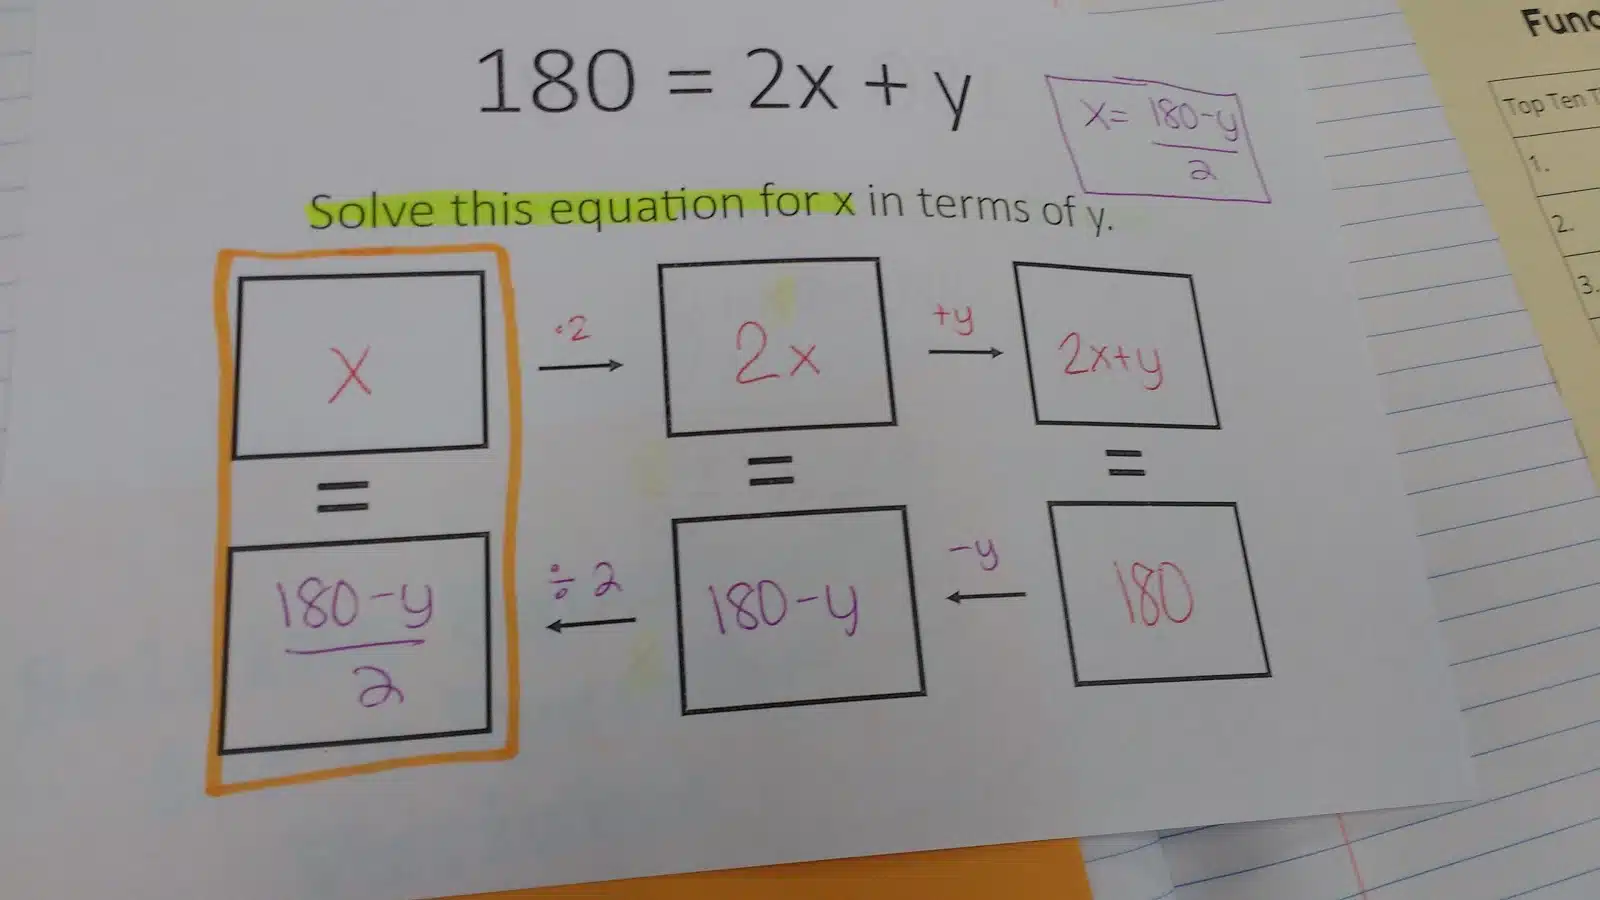 180 = 2x + y
x = 180-y
2
Solve this equation for x in terms of y.
x
·2
2x
+y
2x+y
=
=
=
180-y
2
÷ 2
180-y
-y
180
Top Ten
1.
2.
3.